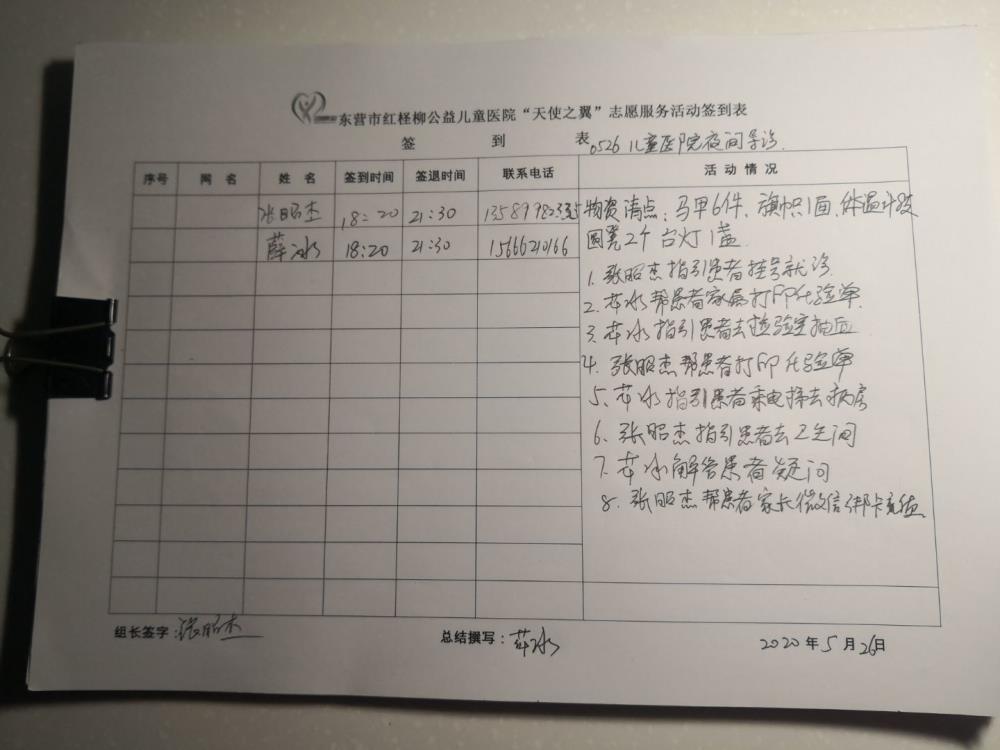 东营市红柽柳公益儿童医院“天使之翼”志愿服务活动签到表
签 到 表 0526 儿童医院夜间导诊
序号 网 名 姓 名 签到时间 签退时间 联系电话 活 动 情 况
张昭杰 18:20 21:30
薛冰 18:20 21:30 15666210166
物资清点:马甲6件、旗帜1面、体温计1支
圆凳2个 台灯1盏
1. 张昭杰指引患者挂号就诊
2. 薛冰帮患者家属打印化验单
3. 薛冰指引患者去检验室抽血
4. 张昭杰帮患者打印化验单
5、薛冰指引患者乘电梯去病房
6. 张昭杰指引患者去卫生间
7. 薛冰解答患者疑问
8. 张昭杰帮患者家长微信绑卡充值
组长签字:张昭杰 总结撰写:薛冰 2020年5月26日